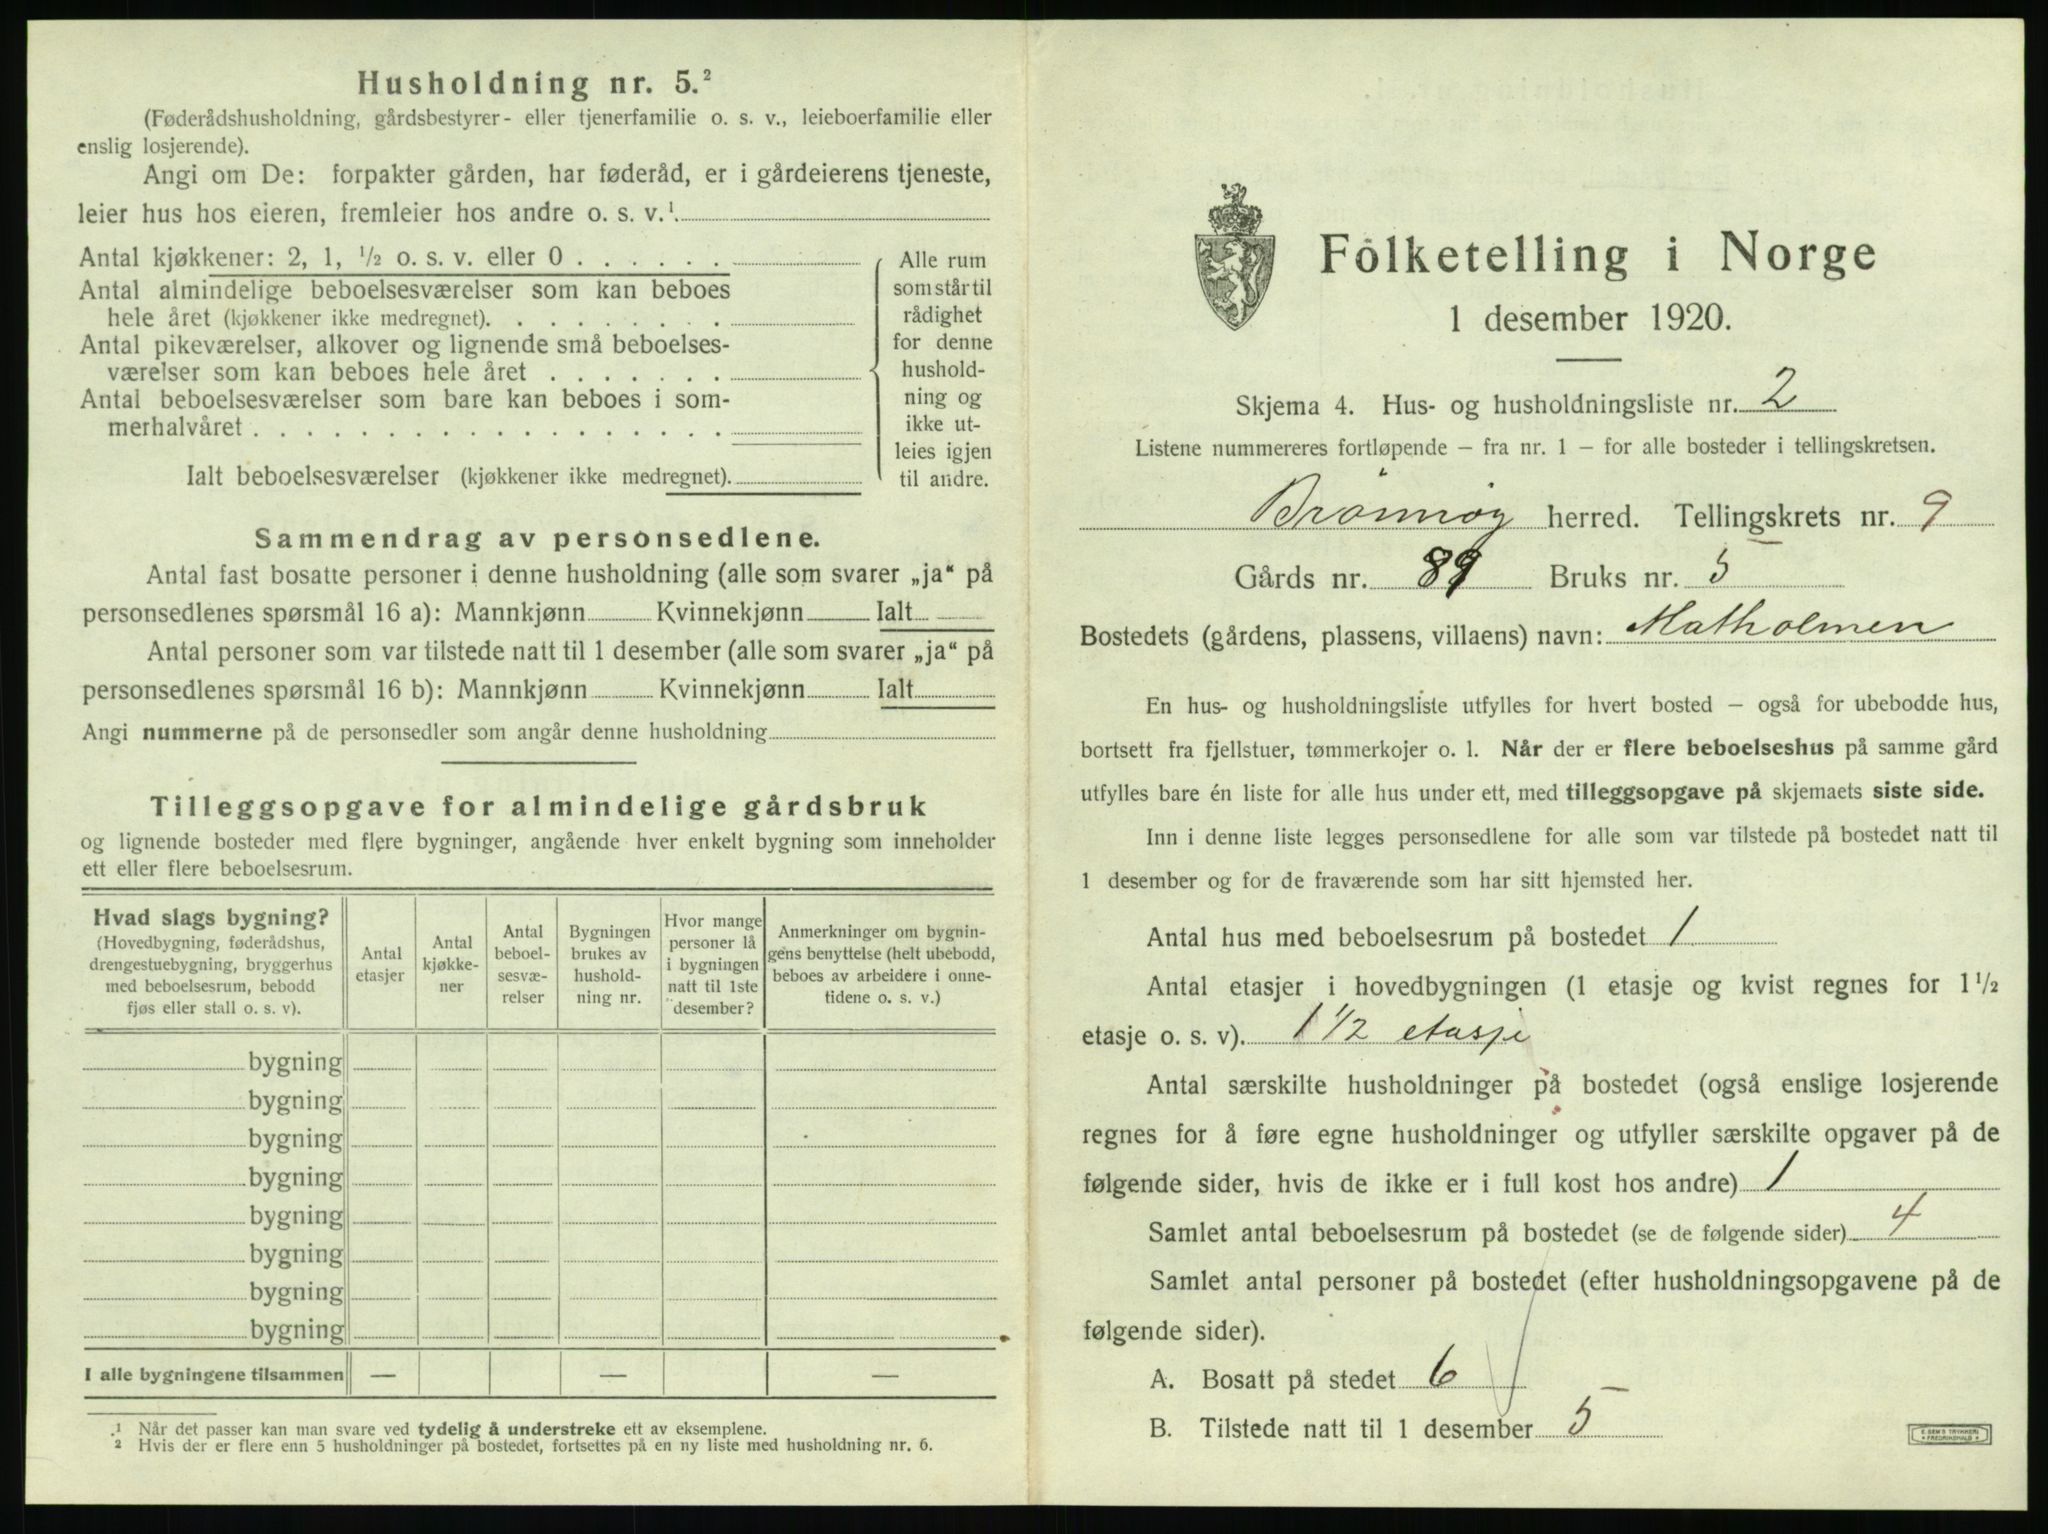 Husholdning nr. 5.²
(Føderådshusholdning, gårdsbestyrer- eller tjenerfamilie o. s. v., leieboerfamilie eller
enslig losjerende).
Angi om De: forpakter gården, har føderåd, er i gårdeierens tjeneste,
leier hus hos eieren, fremleier hos andre o. s. v.¹
Antal kjøkkener: 2, 1, ½ o. s. v. eller 0 . . . . . .
Antal almindelige beboelsesværelser som kan beboes
hele året (kjøkkener ikke medregnet). . . . . . . . .
Antal pikeværelser, alkover og lignende små beboelses-
værelser som kan beboes hele året . . . . . . .
Antal beboelsesværelser som bare kan beboes i som-
merhalvåret . . . . . . . . . . . . . . . . . .
Ialt beboelsesværelser (kjøkkener ikke medregnet).
Alle rum
som står til
rådighet
for denne
hushold-
ning og
ikke ut-
leies igjen
til andre.
Sammendrag av personsedlene.
Antal fast bosatte personer i denne husholdning (alle som svarer „ja“ på
personsedlenes spørsmål 16 a): Mannkjønn Kvinnekjønn Ialt
Antal personer som var tilstede natt til 1 desember (alle som svarer „ja“ på
personsedlenes spørsmål 16 b): Mannkjønn Kvinnekjønn Ialt
Angi nummerne på de personsedler som angår denne husholdning
Tilleggsopgave for almindelige gårdsbruk
og lignende bosteder med flere bygninger, angående hver enkelt bygning som inneholder
ett eller flere beboelsesrum.
Hvad slags bygning?
(Hovedbygning, føderådshus,
drengestuebygning, bryggerhus
med beboelsesrum, bebodd
fjøs eller stall o. s. v).
Antal
etasjer
Antal
kjøkke-
ner
Antal
beboel-
sesvæ-
relser
Bygningen
brukes av
hushold-
ning nr.
Hvor mange
personer lå
i bygningen
natt til 1ste
desember?
Anmerkninger om bygnin-
gens benyttelse (helt ubebodd,
beboes av arbeidere i onne-
tidene o. s. v.)
bygning
bygning
bygning
bygning
bygning
bygning
bygning
bygning
I alle bygningene tilsammen — — —
¹ Når det passer kan man svare ved tydelig å understreke ett av eksemplene.
² Hvis der er flere enn 5 husholdninger på bostedet, fortsettes på en ny liste med husholdning nr. 6.
Folketelling i Norge
1 desember 1920.
Skjema 4. Hus- og husholdningsliste nr. 2
Listene nummereres fortløpende — fra nr. 1 — for alle bosteder i tellingskretsen.
Brönnöy herred. Tellingskrets nr. 9
Gårds nr. 89 Bruks nr. 5
Bostedets (gårdens, plassens, villaens) navn: Matholmen
En hus- og husholdningsliste utfylles for hvert bosted — også for ubebodde hus,
bortsett fra fjellstuer, tømmerkojer o. l. Når der er flere beboelseshus på samme gård
utfylles bare én liste for alle hus under ett, med tilleggsopgave på skjemaets siste side.
Inn i denne liste legges personsedlene for alle som var tilstede på bostedet natt til
1 desember og for de fraværende som har sitt hjemsted her.
Antal hus med beboelsesrum på bostedet 1
Antal etasjer i hovedbygningen (1 etasje og kvist regnes for 1½
etasje o. s. v). 1 1/2 etasje
Antal særskilte husholdninger på bostedet (også enslige losjerende
regnes for å føre egne husholdninger og utfyller særskilte opgaver på de
følgende sider, hvis de ikke er i full kost hos andre) 1
Samlet antal beboelsesrum på bostedet (se de følgende sider) 4
Samlet antal personer på bostedet (efter husholdningsopgavene på de
følgende sider).
A. Bosatt på stedet 6
B. Tilstede natt til 1 desember 5
E. SEM'S TRYKKERI
* FREDRIKSHALD *